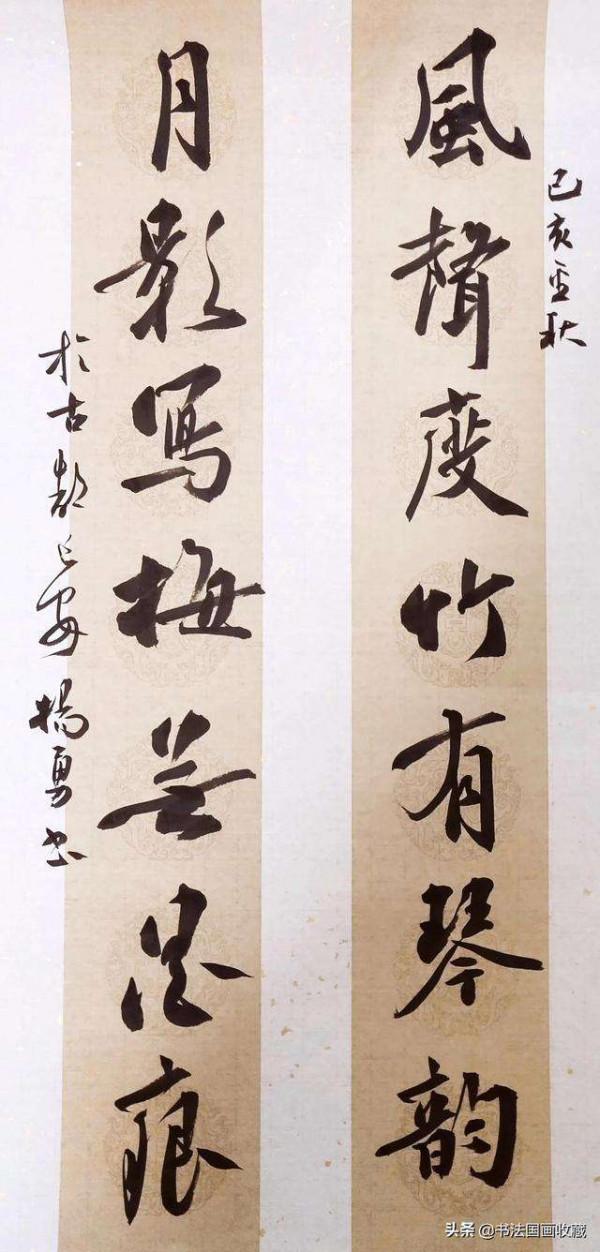 己亥金秋
風聲度竹有琴韻
月影寫梅無墨痕
於古都长安楊勇书
头条 @书法国画收藏